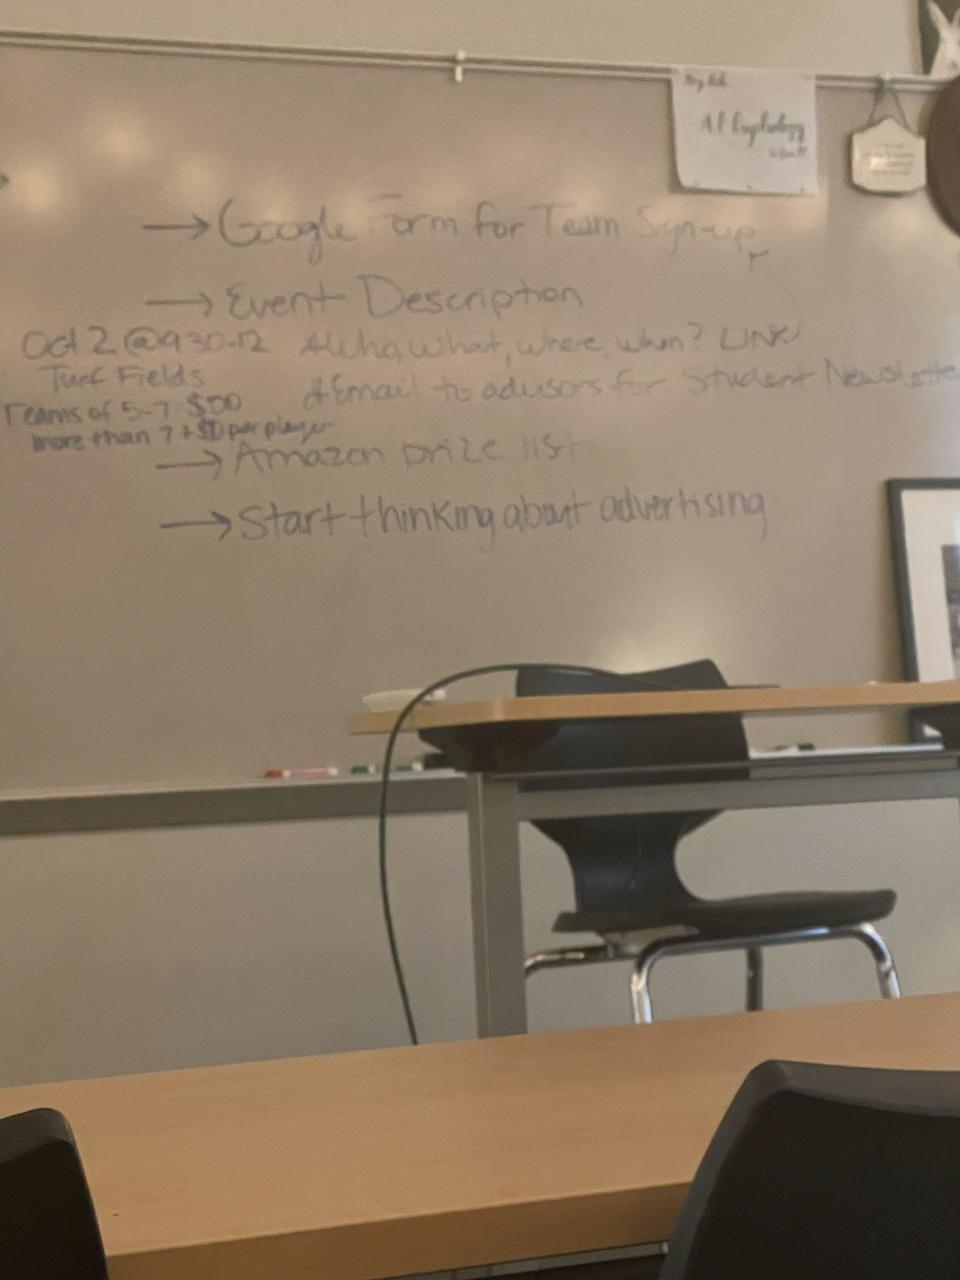 AP Psychology
→ Google Form for Team Sign-up
→ Event Description
Oct 2 @ 9:30-12
Turf Fields
Teams of 5-7:
more than 7 + per player
*Who, What, where, when? LINK
*Email to advisors for Student Newsletter
→ Amazon prize list
→ Start thinking about advertising